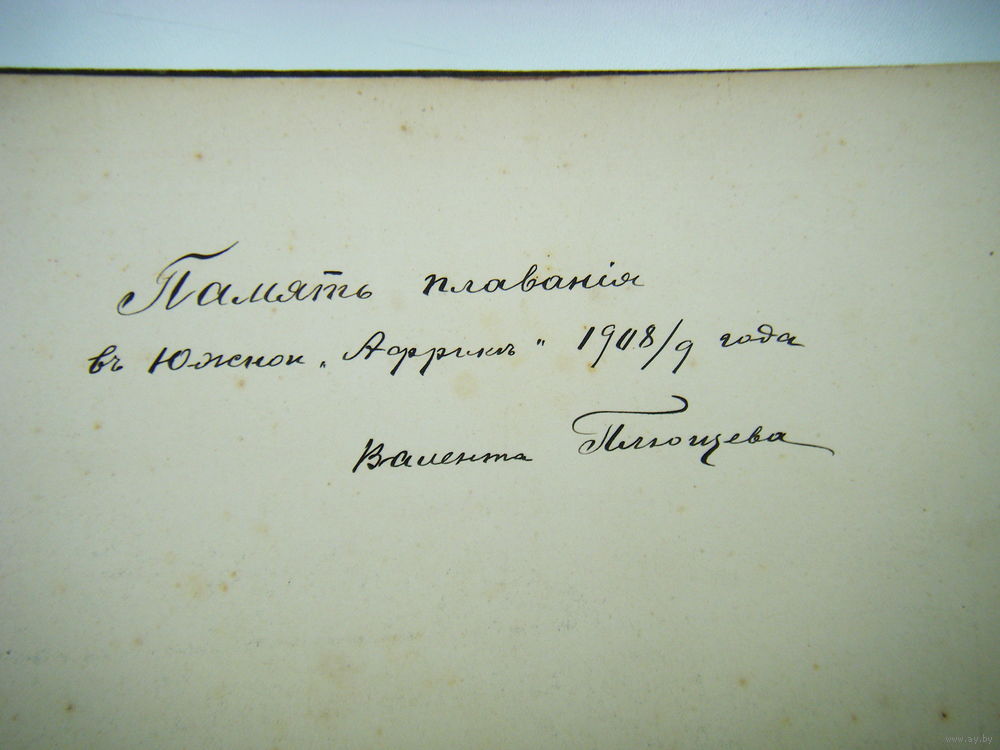 Память плаванія
въ Южной „Африкѣ" 1908/9 года
Валента Плющева
www.ay.by